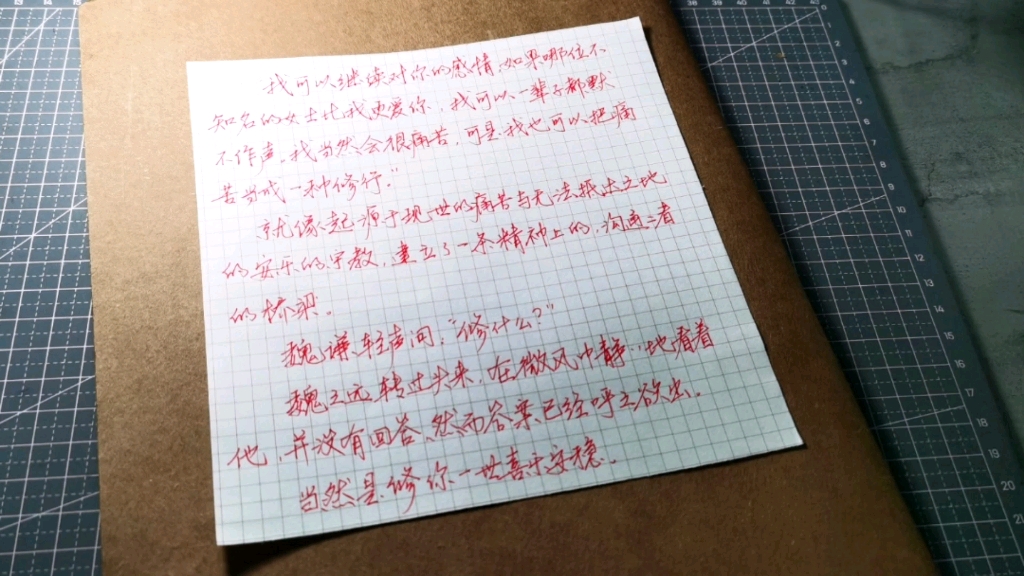 我可以继续对你的感情,如果哪位不
知名的女士比我更爱你,我可以一辈子都默
不作声。我当然会很痛苦,可是我也可以把痛
苦当成一种修行。”
就像起源于现世的痛苦与无法抵达之地
的安乐的宗教,建立了一条精神上的,沟通二者
的桥梁。
魏谦轻声问:“修什么?”
魏之远转过头来,在微风中静静地看着
他,并没有回答,然而答案已经呼之欲出。
当然是修你一世喜乐安稳。